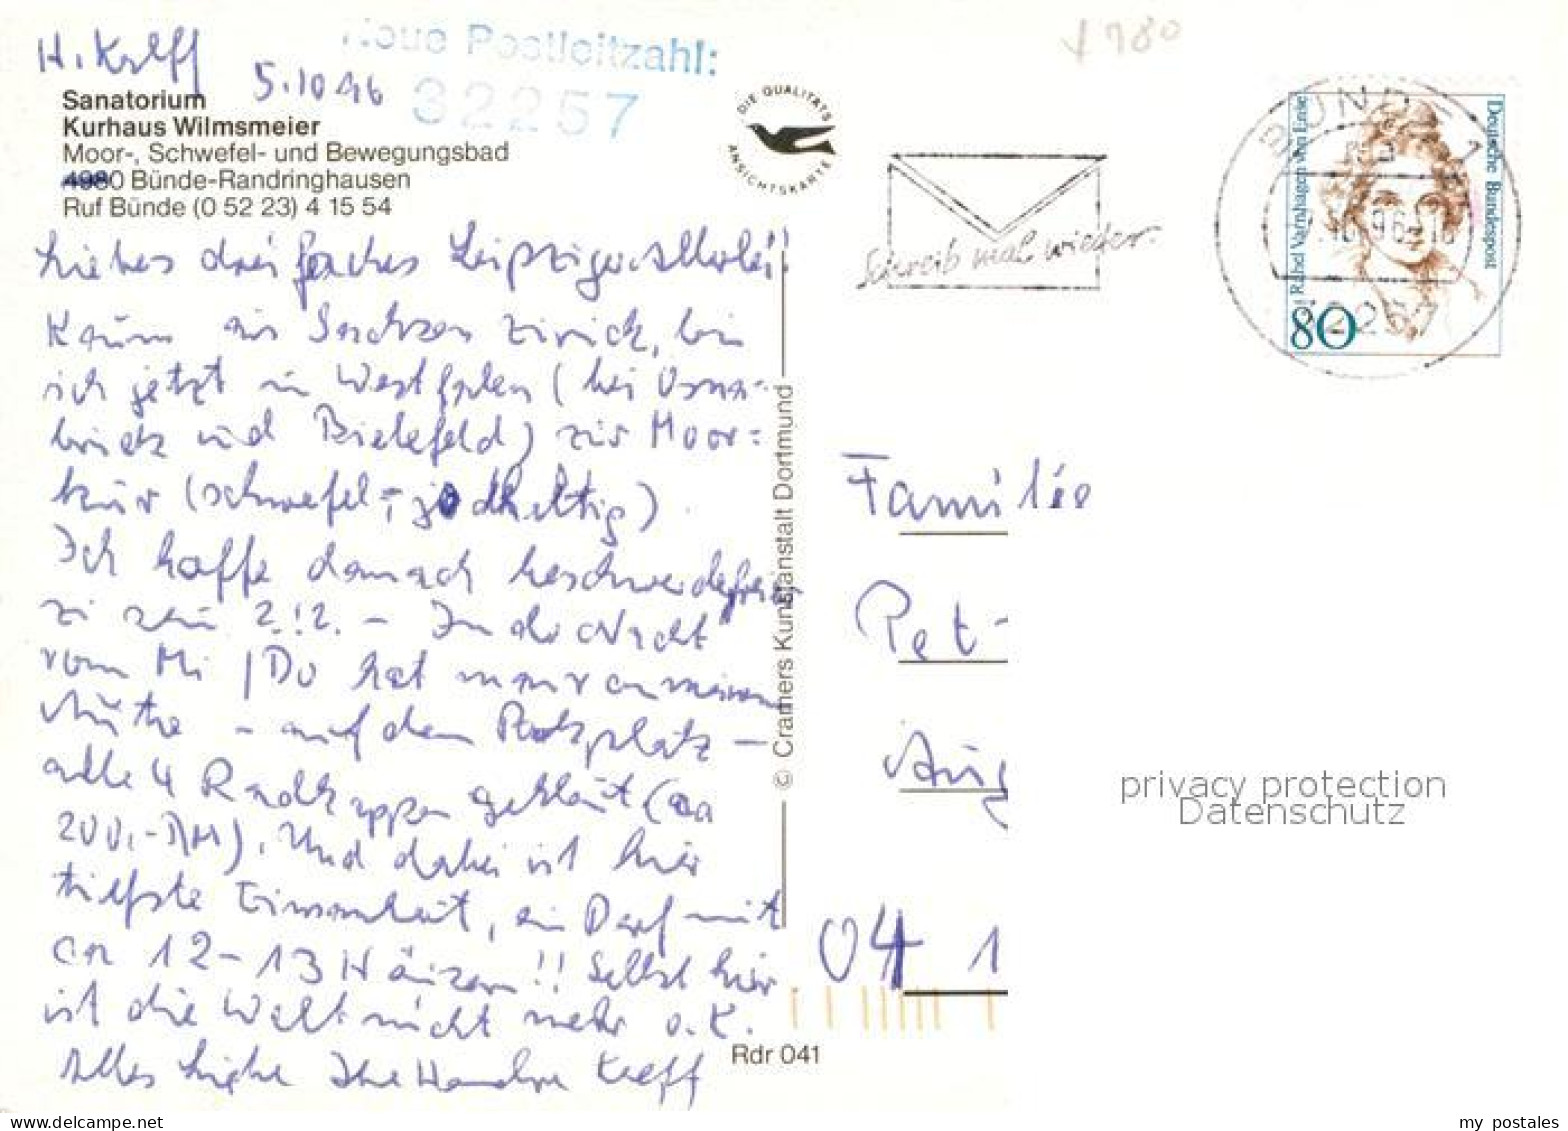 H. Kalff
5.10.96
Neue Postleitzahl:
32257
Sanatorium
Kurhaus Wilmsmeier
Moor-, Schwefel- und Bewegungsbad
4980 Bünde-Randringhausen
Ruf Bünde (0 52 23) 4 15 54
Liebes dreifaches Leipziger-Allerlei!
Kaum aus Sachsen zurück, bin
ich jetzt in Westfalen (bei Osna-
brück und Bielefeld) zur Moor=
kur (schwefel-, jodhaltig).
Ich hoffe danach beschwerdefrei
zu sein ?!?. - In der Nacht
vom Mi/Do hat man an meinem
Auto - auf dem Parkplatz -
alle 4 Radkappen geklaut (ca
200,- DM). Und dabei ist hier
tiefste Einsamkeit, ein Dorf mit
ca 12-13 Häusern!! Selbst hier
ist die Welt nicht mehr o.K.
Alles Liebe Ihre Kalff
DIE QUALITÄTS
ANSICHTSKARTE
© Cramers Kunstanstalt Dortmund
Rdr 041
Schreib mal wieder.
BÜNDE 1
-9.10.96-18
32257
Deutsche Bundespost
Rahel Varnhagen von Ense
80
Familie
Pet-
Aug
04 1
privacy protection
Datenschutz
my_postales